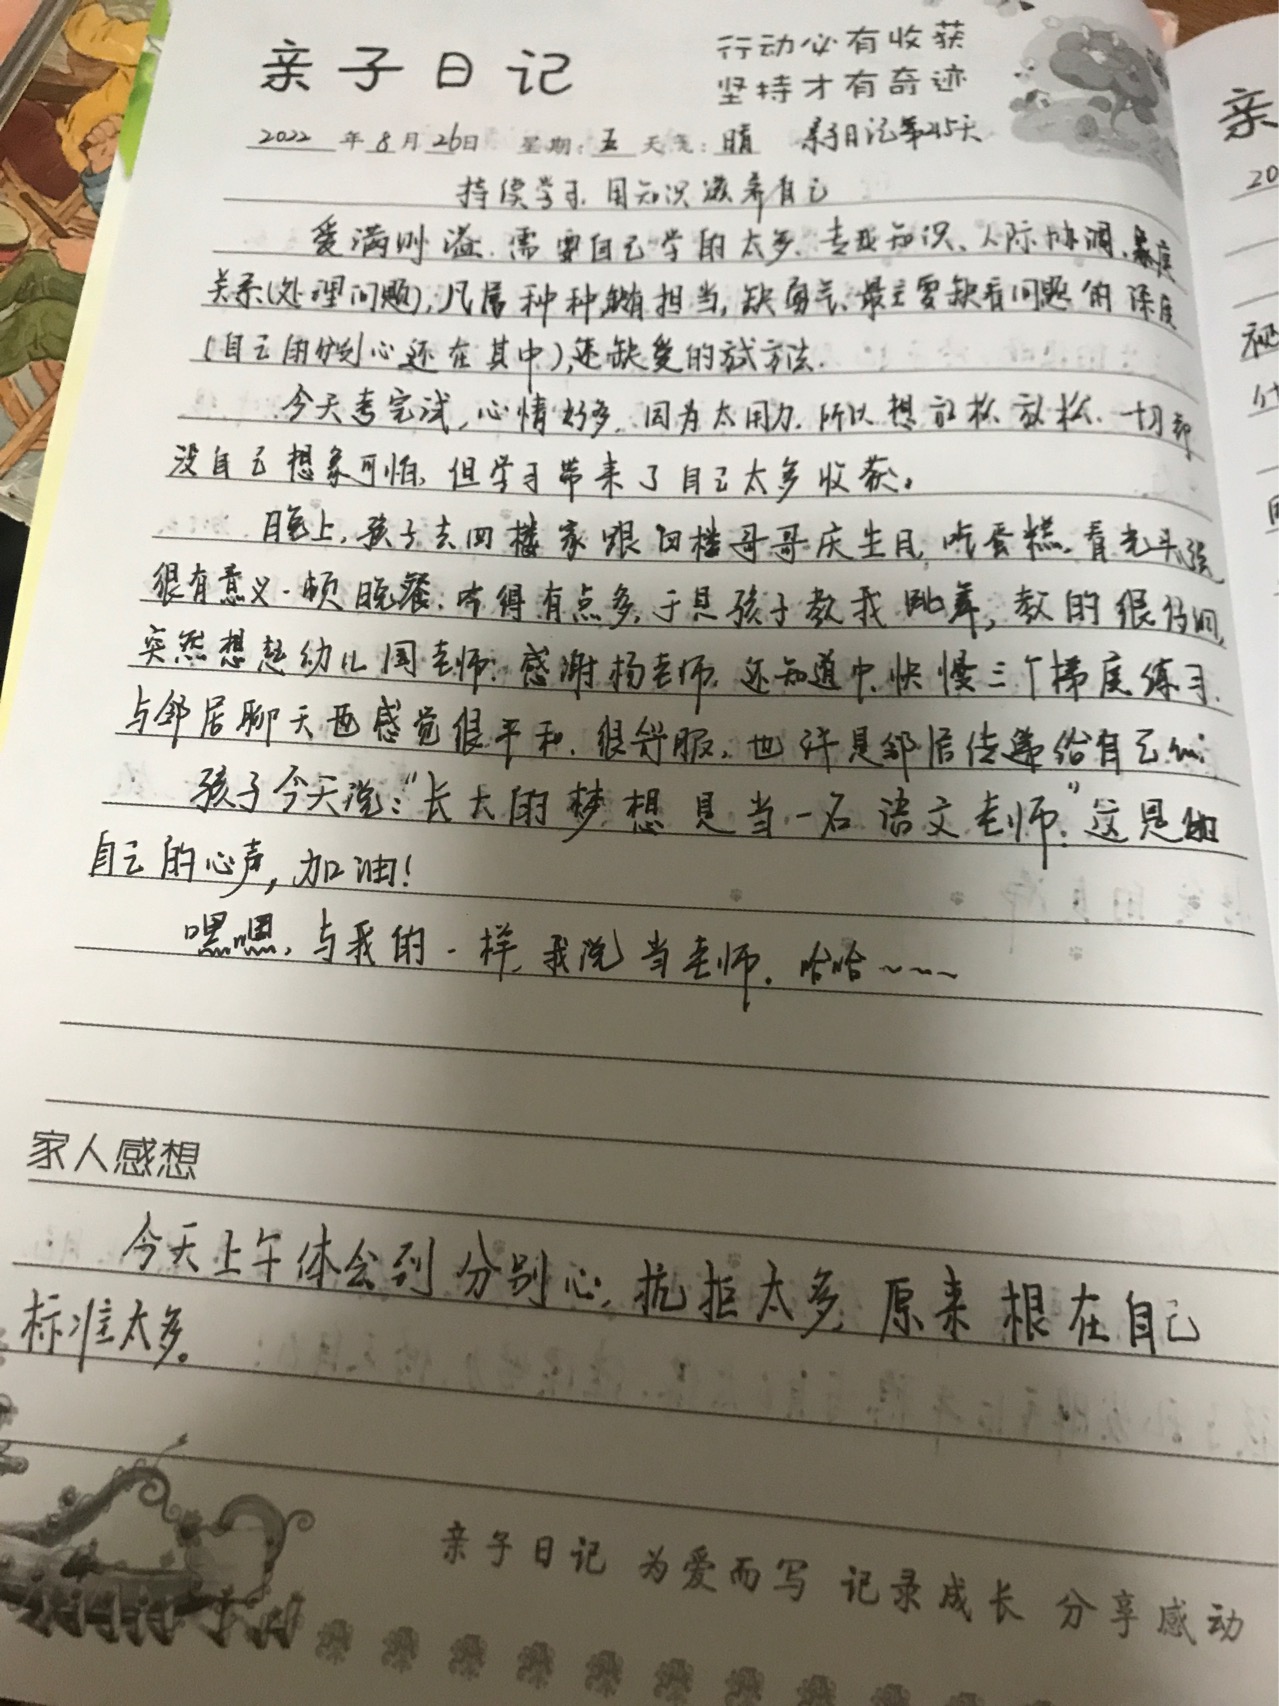 亲子日记
行动必有收获
坚持才有奇迹
2022年8月26日 星期:五 天气:晴 亲子日记第215天
持续学习 用知识滋养自己
爱满则溢,需要自己学的太多,专业知识、人际协调、
关系(处理问题),凡属种种缺担当,缺勇气,最主要缺看问题的深度
(自己的分别心还在其中),还缺爱的方法.
今天考完试,心情好多,因为太用力,所以想放松放松,一切都
没自己想象可怕,但学习带来了自己太多收获。
晚上,孩子去四楼家跟四楼哥哥庆生日,吃蛋糕,看光头强
很有意义一顿晚餐,吃得有点多,于是孩子教我跳舞,教的很仔细,
突然想起幼儿园老师,感谢杨老师,还知道中、快、慢三个梯度练习,
与邻居聊天也感觉很平和,很舒服,也许是邻居传递给自己
孩子今天说:“长大的梦想是当一名语文老师。”这是她
自己的心声,加油!
嘿嘿,与我的一样,我说当老师,哈哈~~~
家人感想
今天上午体会到分别心,抗拒太多,原来根在自己
标准太多。
亲子日记 为爱而写 记录成长 分享感动
亲
20